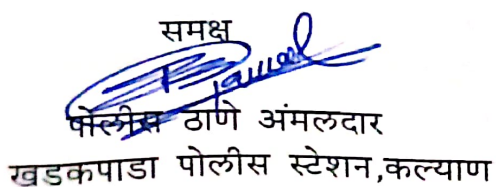 समक्ष
पोलीस ठाणे अंमलदार
खडकपाडा पोलीस स्टेशन,कल्याण